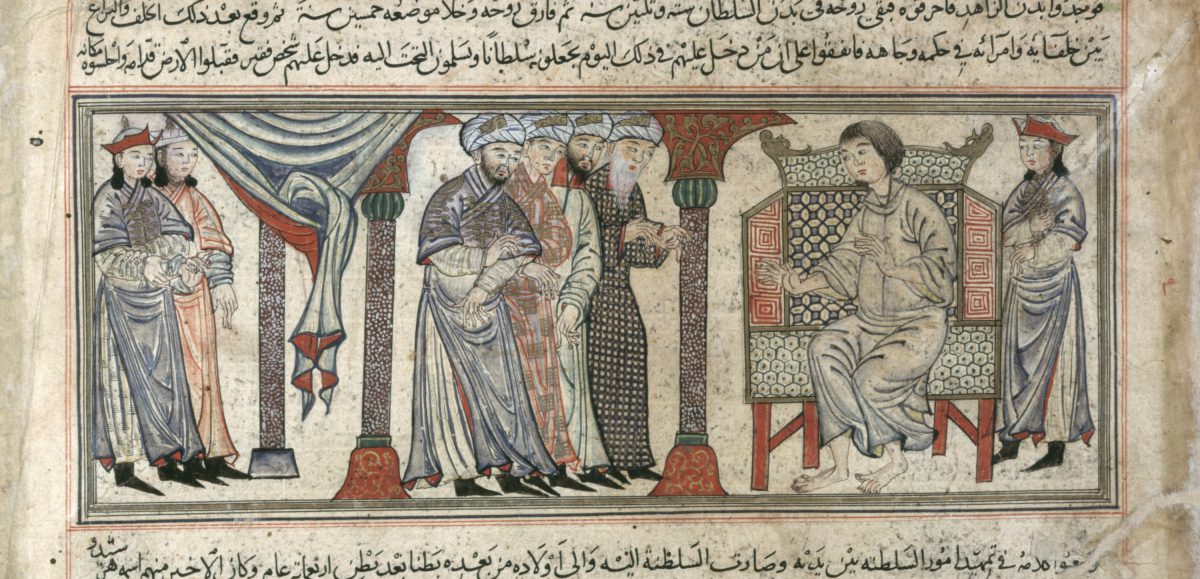 بدن الزاهد فاحرقوه فبقى روحه فى بدن السلطان سته وثلثين سنه ثم فارق روحه وخلا موضعه خمسين سنة ثم وقع بعد ذلك الخلف والنزاع
بين خلفائه وامرائه في حكمه وجاهه فاتفقوا على ان من دخل عليهم في ذلك اليوم يجعلونه سلطانا ويسلمون التخت اليه فدخل عليهم شخص فقير فقبلوا الارض قدامه واجلسوه مكانه
فى تمهيد امور السلطنه بين يديه وصارت السلطنة اليه والى اولاده من بعده بطنا بعد بطن اربعمائة عام وكان الاخير منهم اسمه